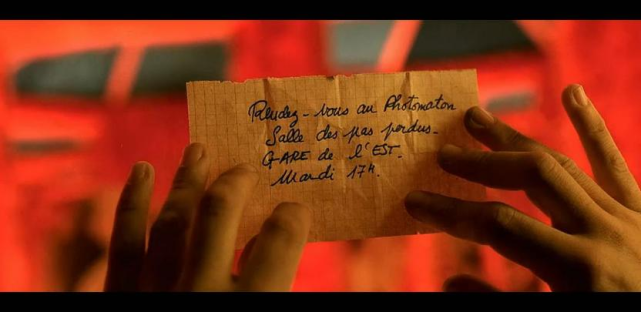 Rendez-vous au Photomaton
Salle des pas perdus.
GARE de l'EST.
Mardi 17H.